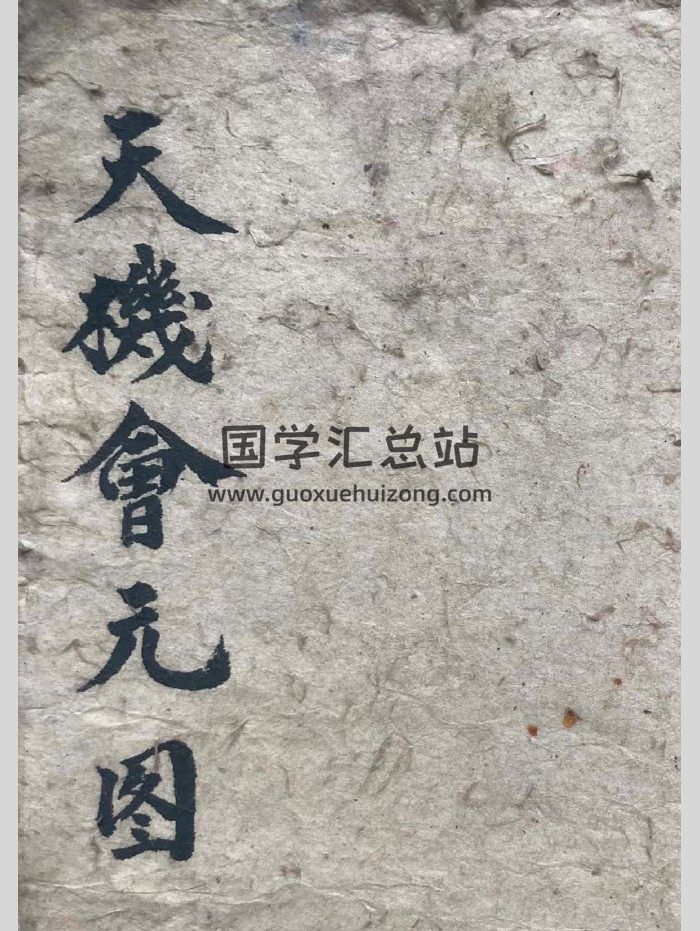 天機會元图
国学汇总站
www.guoxuehuizong.com